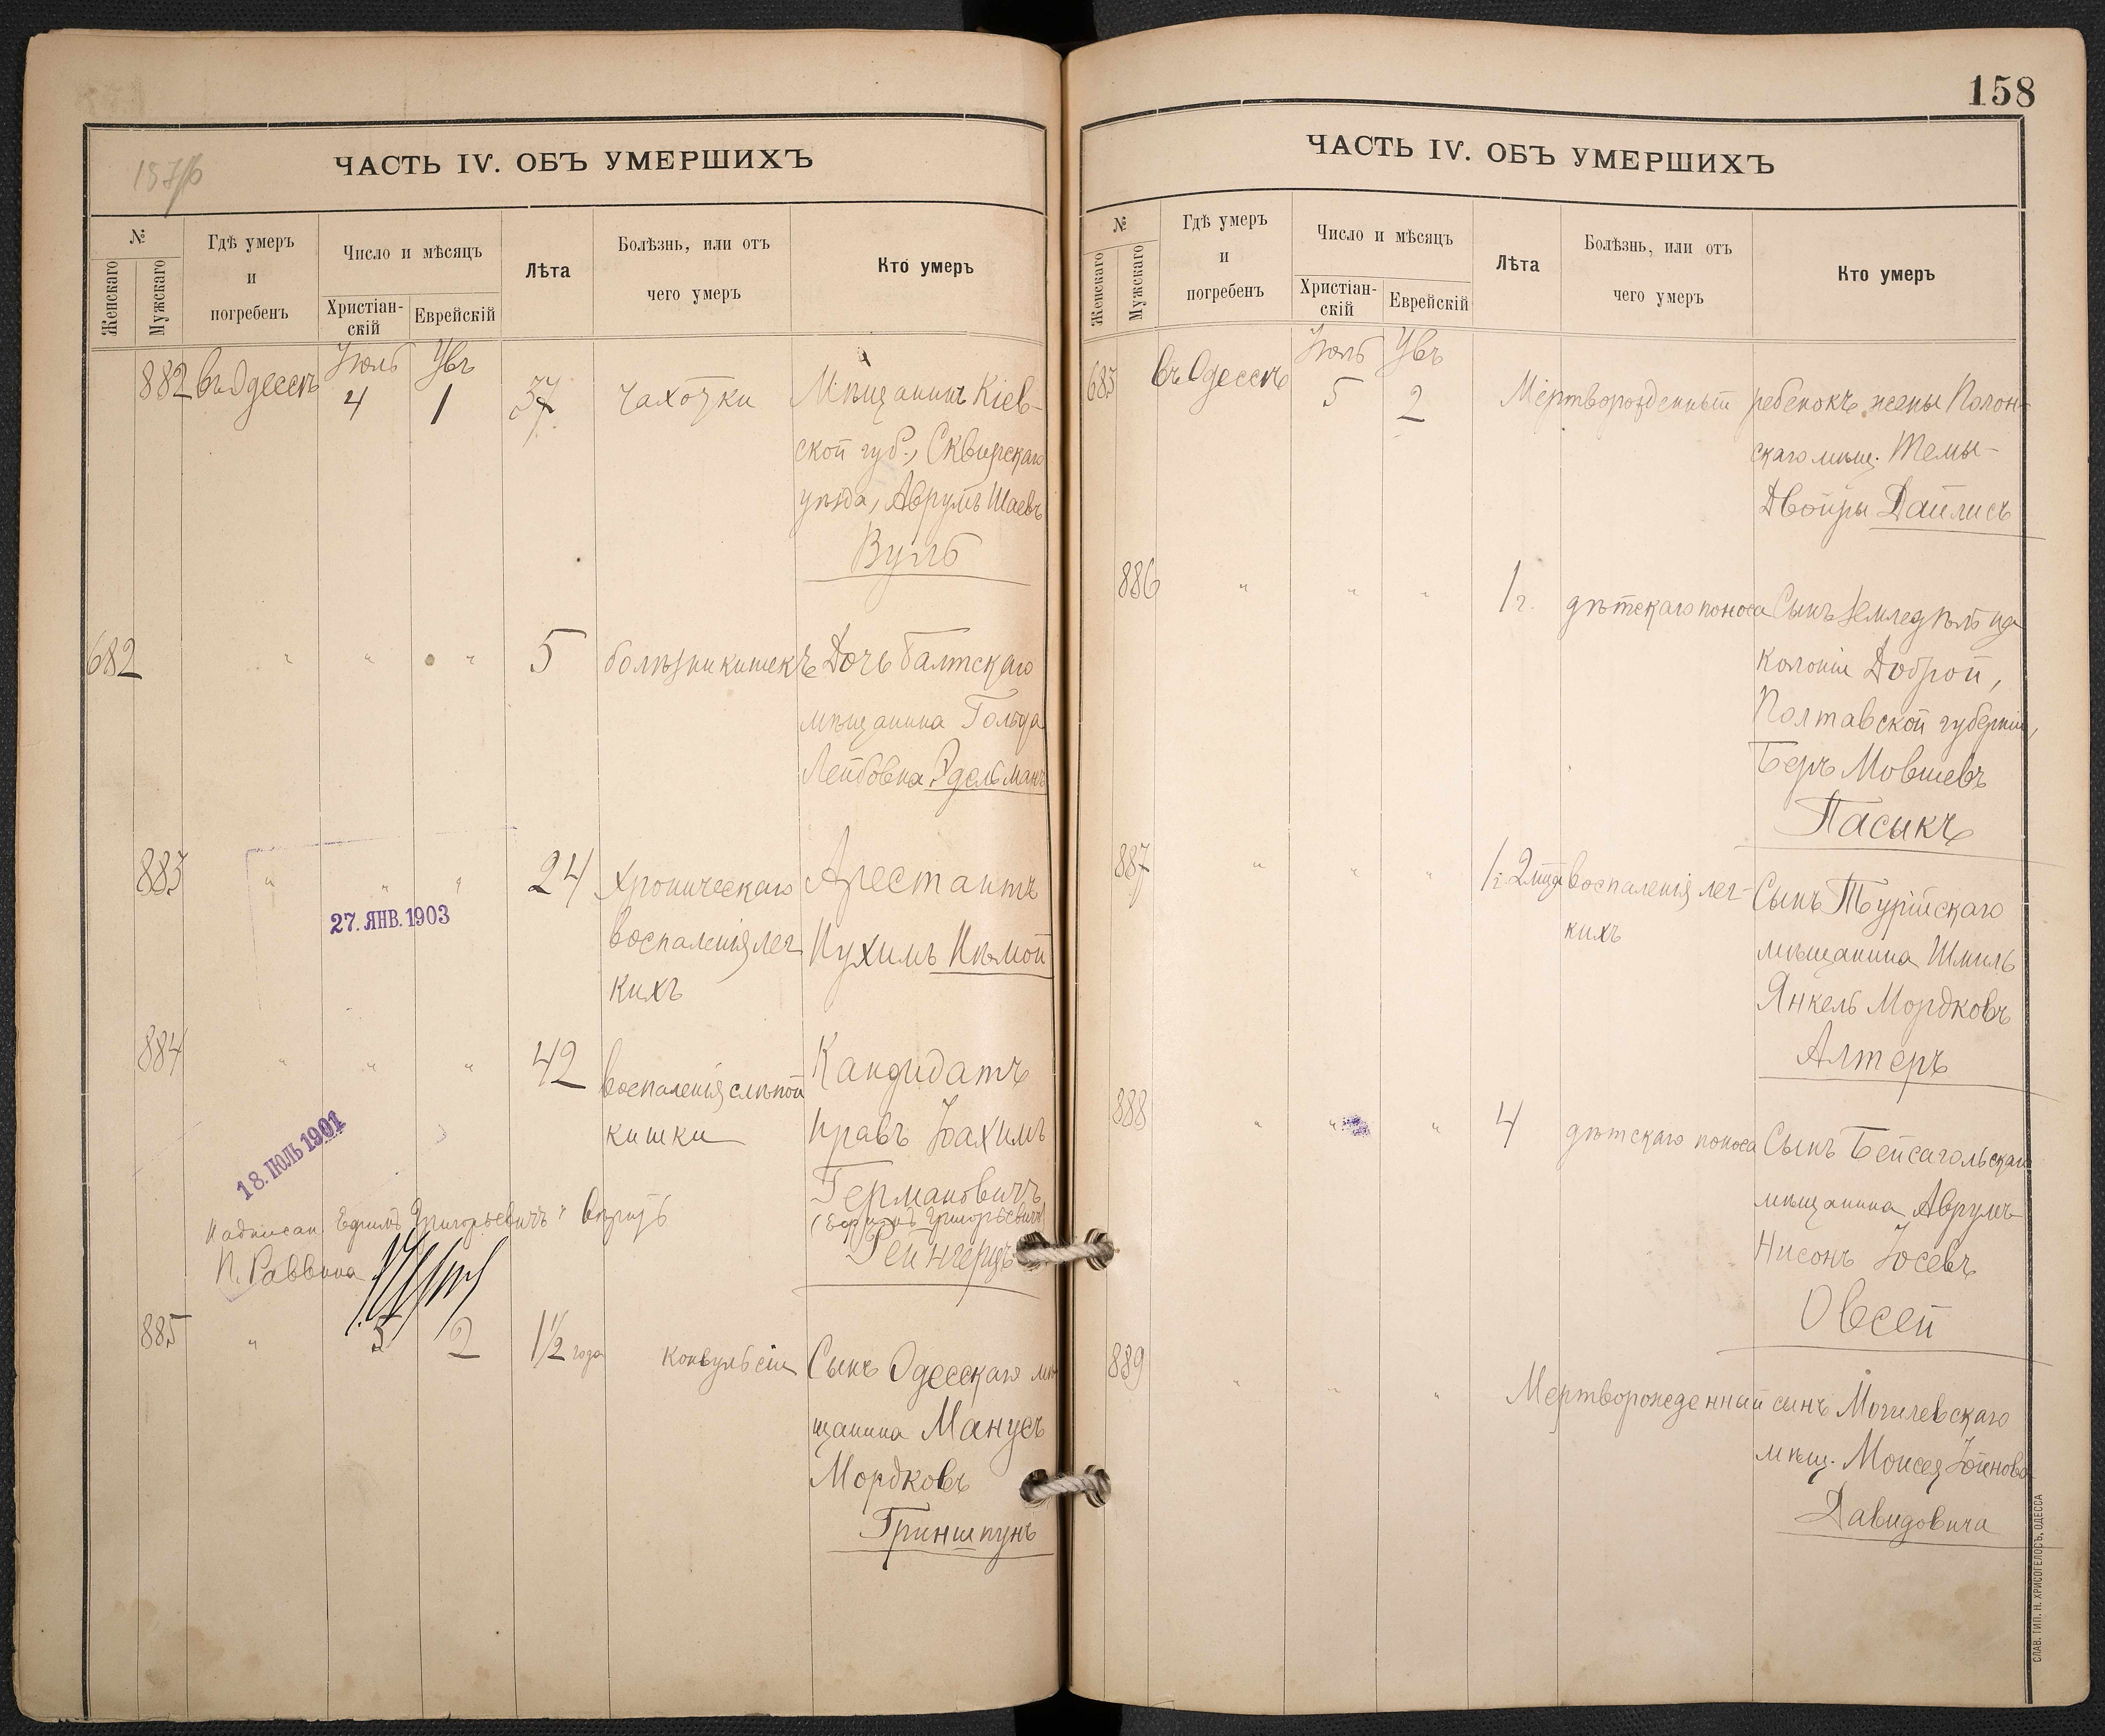 157/б
ЧАСТЬ IV. ОБЪ УМЕРШИХЪ
№
Женскаго
Мужскаго
Гдѣ умеръ
и
погребенъ
Число и мѣсяцъ
Христіан-
скій
Еврейскій
Лѣта
Болѣзнь, или отъ
чего умеръ
Кто умеръ
882 въ Одессѣ Іюль 4 Увъ 1 37 чахотки Мѣщанинъ Кіев-
ской губ., Сквирскаго
уѣзда, Аврумъ Шаевъ
Вулъ
682 " " " 5 болѣзни кишекъ Дочь Балтскаго
мѣщанина Гольда
Лейбовна Эдельманъ
883 " " " 24 хроническаго Арестантъ
воспаленія лег Нухимъ Нѣмой
кихъ
27. ЯНВ. 1903
884 " " " 42 воспаленія слѣпой Кандидатъ
кишки правъ Іоахимъ
Германовичъ
(Ефимъ Григорьевичъ)
Рейнгерцъ
18. ІЮЛЬ 1901
Надписан. "Ефимъ Григорьевичъ" вѣрить
П. Раввина
885 " 5 2 1½ года конвульсіи Сынъ Одесскаго мѣ
щанина Манусъ
Мордковъ
Гриншпунъ
158
ЧАСТЬ IV. ОБЪ УМЕРШИХЪ
№
Женскаго
Мужскаго
Гдѣ умеръ
и
погребенъ
Число и мѣсяцъ
Христіан-
скій
Еврейскій
Лѣта
Болѣзнь, или отъ
чего умеръ
Кто умеръ
683 въ Одессѣ Іюль 5 Увъ 2 Мертворожденный ребенокъ жены Полон-
скаго мѣщ. Темы-
Двойры Дайлисъ
886 " " " 1 г. дѣтскаго поноса Сынъ земледѣльца
колоніи Доброй,
Полтавской губерніи,
Беръ Мовшевъ
Пасыкъ
887 " " " 1 г. 2 мца воспаленія лег- Сынъ Турійскаго
кихъ мѣщанина Шмиль
Янкель Мордковъ
Алтеръ
888 " " " 4 дѣтскаго поноса Сынъ Бейсагольскаго
мѣщанина Аврумъ
Нисонъ Іосевъ
Овсей
889 " " " Мертворожденный сынъ Могилевскаго
мѣщ. Моисея Іойнова
Давидовича
СЛАВ. ТИП. Н. ХРИСОГЕЛОСЪ, ОДЕССА